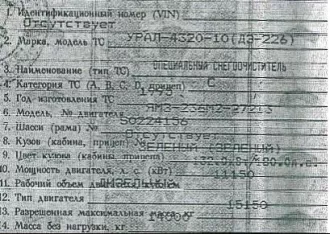 1. Идентификационный номер (VIN)
Отсутствует
2. Марка, модель ТС УРАЛ-4320-10(ДЭ-226)
3. Наименование (тип ТС) СПЕЦИАЛЬНЫЙ СНЕГООЧИСТИТЕЛЬ
4. Категория ТС (A, B, C, D, прицеп) C
5. Год изготовления ТС
6. Модель, № двигателя ЯМЗ-236М2-27213
7. Шасси (рама) № S0224156
8. Кузов (кабина, прицеп) № Отсутствует
9. Цвет кузова (кабины, прицепа) ЗЕЛЕНЫЙ (ЗЕЛЕНЫЙ)
10. Мощность двигателя, л. с. (кВт)
11. Рабочий объем двигателя 11150
12. Тип двигателя
13. Разрешенная максимальная 15150
14. Масса без нагрузки, кг